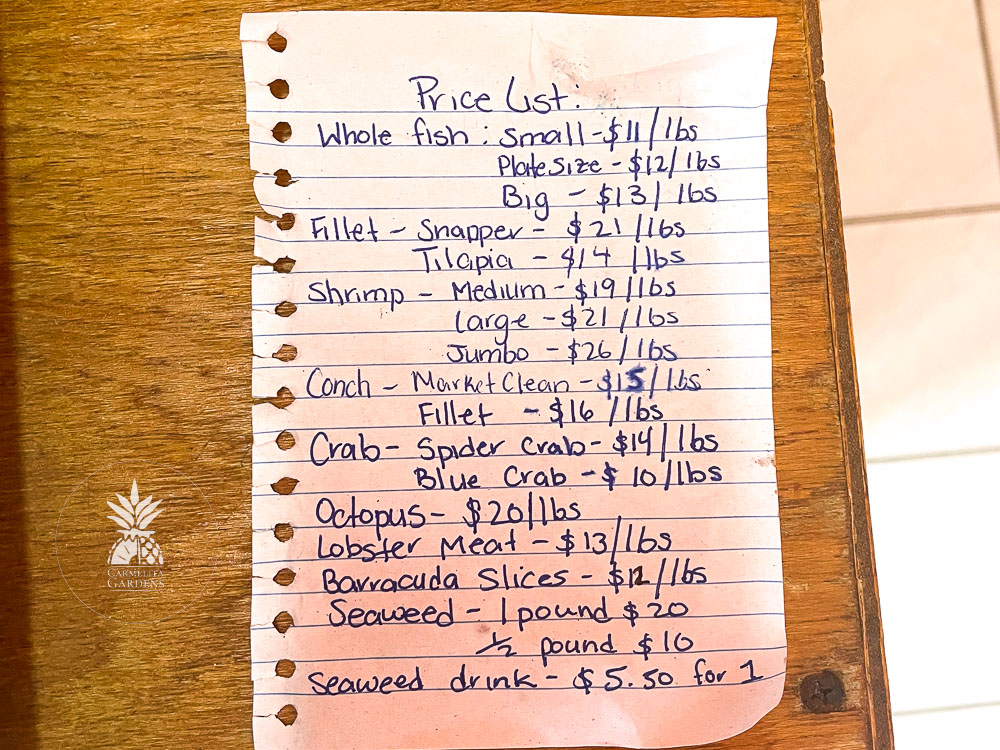 Price List:
Whole fish: small-$11/lbs
Plate Size - $12/lbs
Big - $13/lbs
Fillet - Snapper - $21/lbs
Tilapia - $14 /lbs
Shrimp - Medium - $19/lbs
Large - $21/lbs
Jumbo - $26/lbs
Conch - Market Clean - $15/lbs
Fillet - $16 /lbs
Crab - Spider Crab - $14/lbs
Blue Crab - $10/lbs
Octopus - $20/lbs
Lobster Meat - $13/lbs
Barracuda Slices - $12/lbs
Seaweed - 1 pound $20
1/2 pound $10
Seaweed drink - $5.50 for 1
CARMELITA
GARDENS